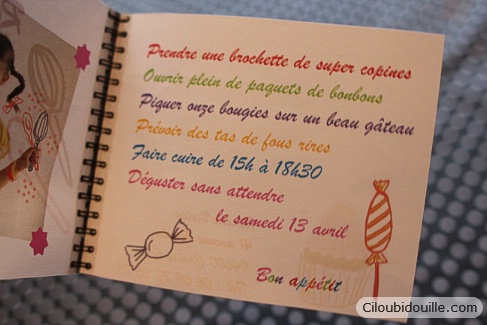 Prendre une brochette de super copines
Ouvrir plein de paquets de bonbons
Piquer onze bougies sur un beau gâteau
Prévoir des tas de fous rires
Faire cuire de 15h à 18h30
Déguster sans attendre
le samedi 13 avril
Bon appétit
Ciloubidouille.com